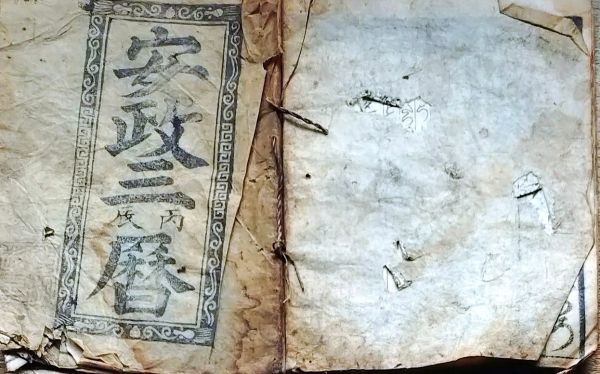 安政三丙辰暦